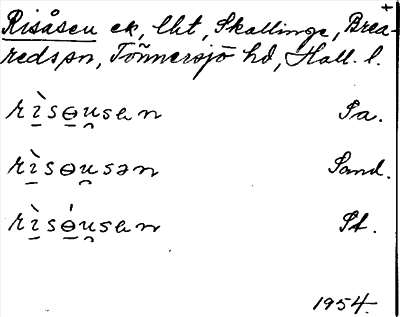 Risåsen ek, lht, Skallinge, Brea-
redspn, Tönnersjö hd, Hall. l.
rìsɵu̯sɐn Sa.
rìsɵu̯sən Sand.
rìsɵ́u̯sɐn St.
1954.